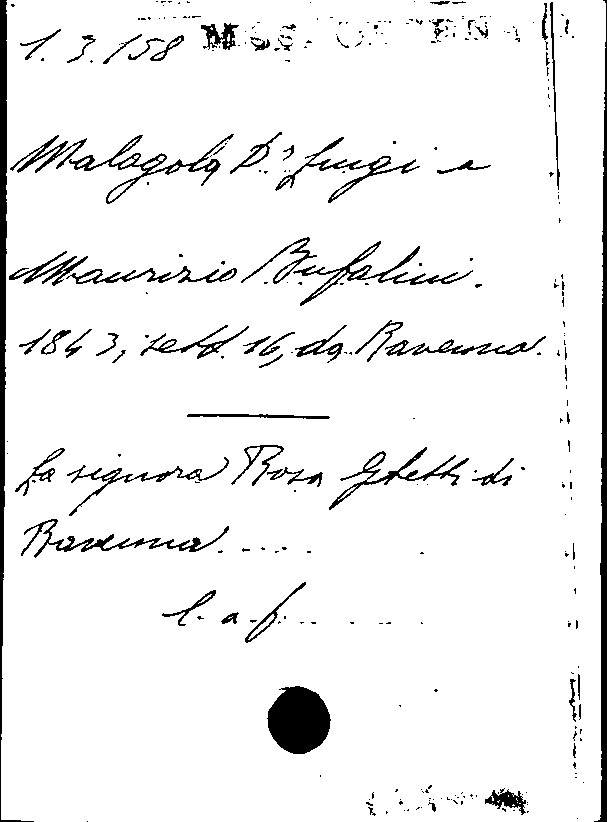 1.3.158 MSS.
Malagola Dr Luigi a
Maurizio Bufalini.
1843, sett. 16, da Ravenna.
La signora Rosa Ghetti di
Ravenna.....
l. a. f.